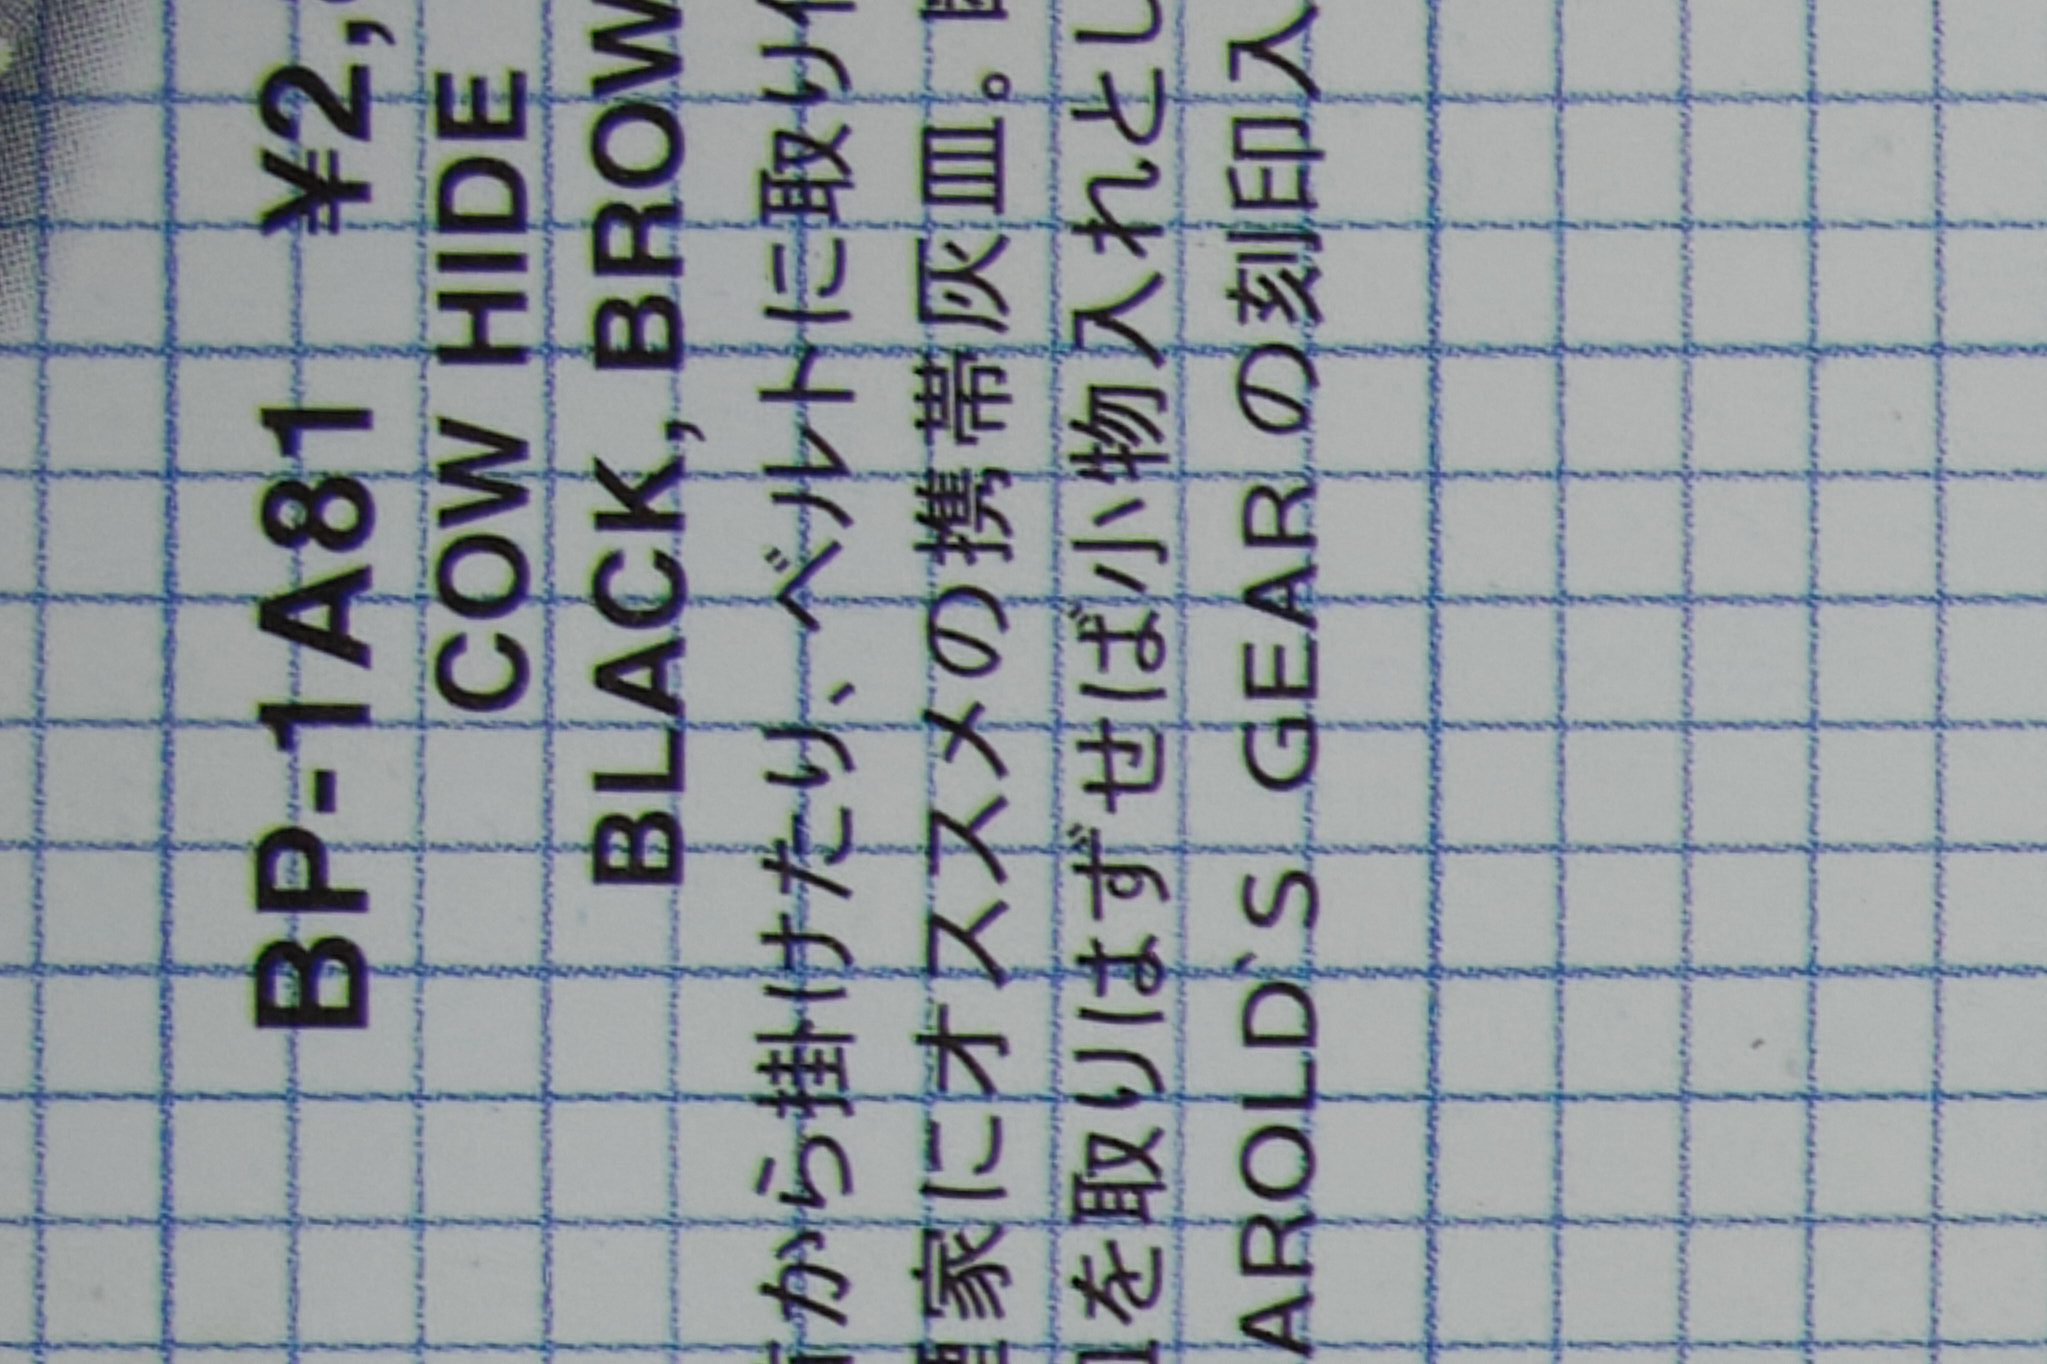 BP-1A81 ¥2,
COW HIDE
BLACK, BROW
から掛けたり、ベルトに取り
家にオススメの携帯灰皿。
を取りはずせば小物入れとし
AROLD`S GEAR の刻印入